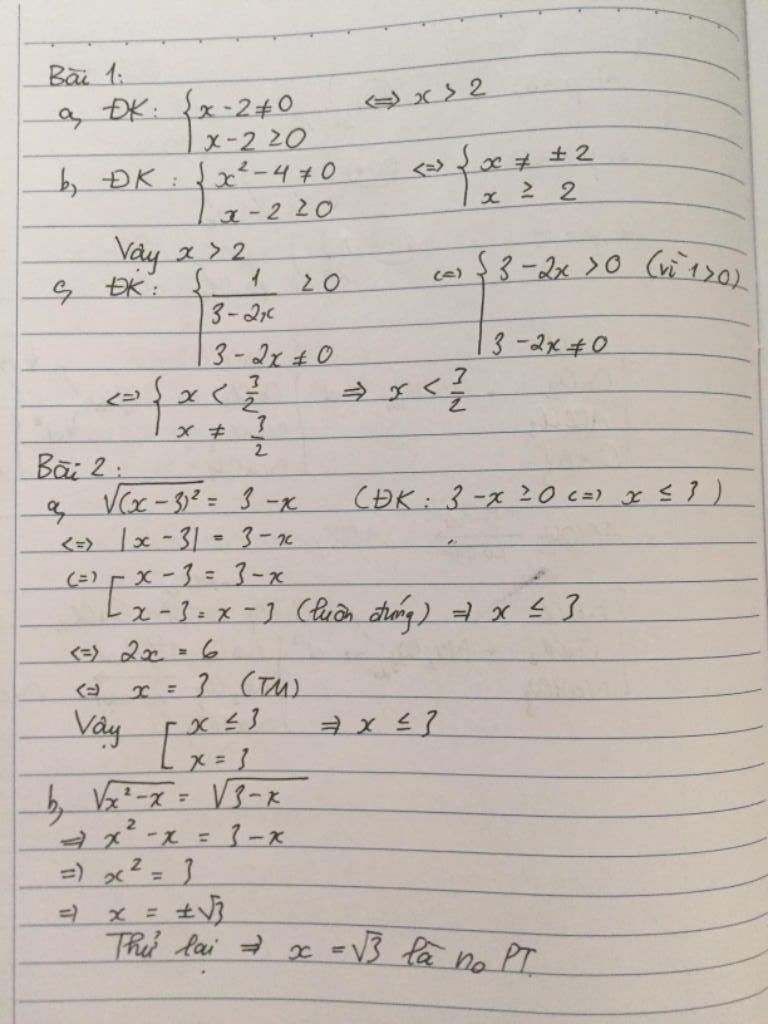 Bài 1:
a, ĐK: { x - 2 ≠ 0 <=> x > 2
x - 2 ≥ 0
b, ĐK: { x² - 4 ≠ 0 <=> { x ≠ ± 2
x - 2 ≥ 0 x ≥ 2
Vậy x > 2
c, ĐK: { 1/(3 - 2x) ≥ 0 <=> { 3 - 2x > 0 (vì 1 > 0)
3 - 2x ≠ 0 3 - 2x ≠ 0
<=> { x < 3/2 => x < 3/2
x ≠ 3/2
Bài 2:
a, √(x - 3)² = 3 - x (ĐK: 3 - x ≥ 0 <=> x ≤ 3)
<=> |x - 3| = 3 - x
<=> [ x - 3 = 3 - x
x - 3 = x - 3 (luôn đúng) => x ≤ 3
<=> 2x = 6
<=> x = 3 (TM)
Vậy [ x ≤ 3 => x ≤ 3
x = 3
b, √x² - x = √3 - x
=> x² - x = 3 - x
=> x² = 3
=> x = ±√3
Thử lại => x = √3 là no PT